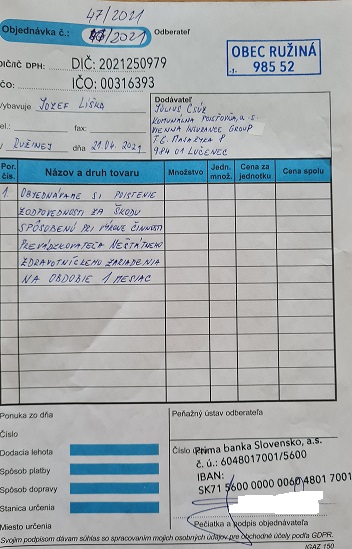 47/2021
Objednávka č.: 47/2021
Odberateľ
DIČ/IČ DPH: DIČ: 2021250979
IČO: IČO: 00316393
OBEC RUŽINÁ
985 52
-1-
Vybavuje JOZEF LIŠKA
tel.: fax:
V RUŽINEJ dňa 21.04.2021
Dodávateľ
JÚLIUS CSÚZ
KOMUNÁLNA POISŤOVŇA, a.s.
VIENNA INSURANCE GROUP
T.G. MASARYKA 8
984 01 LUČENEC
Por. čís. Názov a druh tovaru Množstvo Jedn. množ. Cena za jednotku Cena spolu
1. OBJEDNÁVAME SI POISTENIE
ZODPOVEDNOSTI ZA ŠKODU
SPÔSOBENÚ PRI VÝKONE ČINNOSTI
PREVÁDZKOVATEĽA NEŠTÁTNEHO
ZDRAVOTNÍCKEHO ZARIADENIA
NA OBDOBIE 1 MESIAC
Ponuka zo dňa
Číslo
Dodacia lehota
Spôsob platby
Spôsob dopravy
Stanica určenia
Miesto určenia
Peňažný ústav odberateľa
Prima banka Slovensko, a.s.
Číslo
č. ú.: 6048017001/5600
IBAN:
SK71 5600 0000 0060 4801 7001
Pečiatka a podpis objednávateľa
Svojim podpisom dávam súhlas so spracovaním mojich osobných údajov pre obchodné účely podľa GDPR.
IGAZ 150